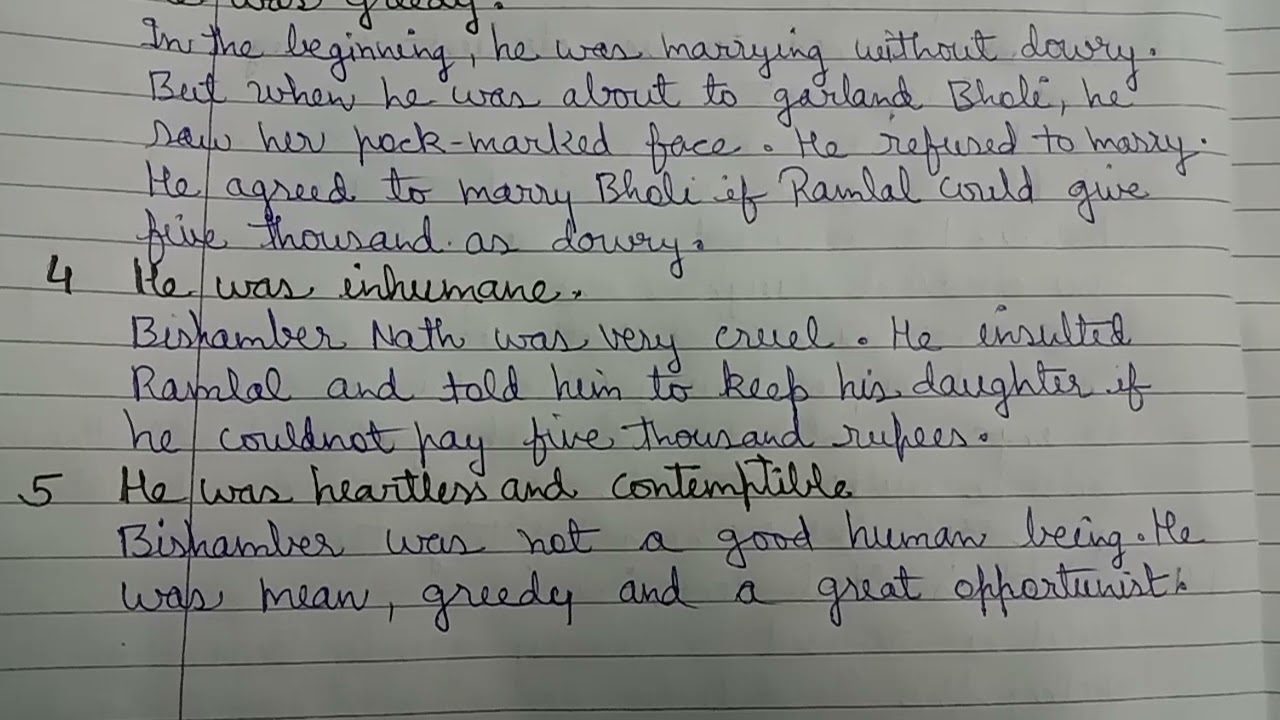 was greedy.
In the beginning, he was marrying without dowry.
But when he was about to garland Bholi, he
saw her pock-marked face. He refused to marry.
He agreed to marry Bholi if Ramlal could give
five thousand as dowry.
4 He was inhumane.
Bishamber Nath was very cruel. He insulted
Ramlal and told him to keep his daughter if
he couldnot pay five thousand rupees.
5 He was heartless and contemptible
Bishamber was not a good human being. He
was mean, greedy and a great opportunist.